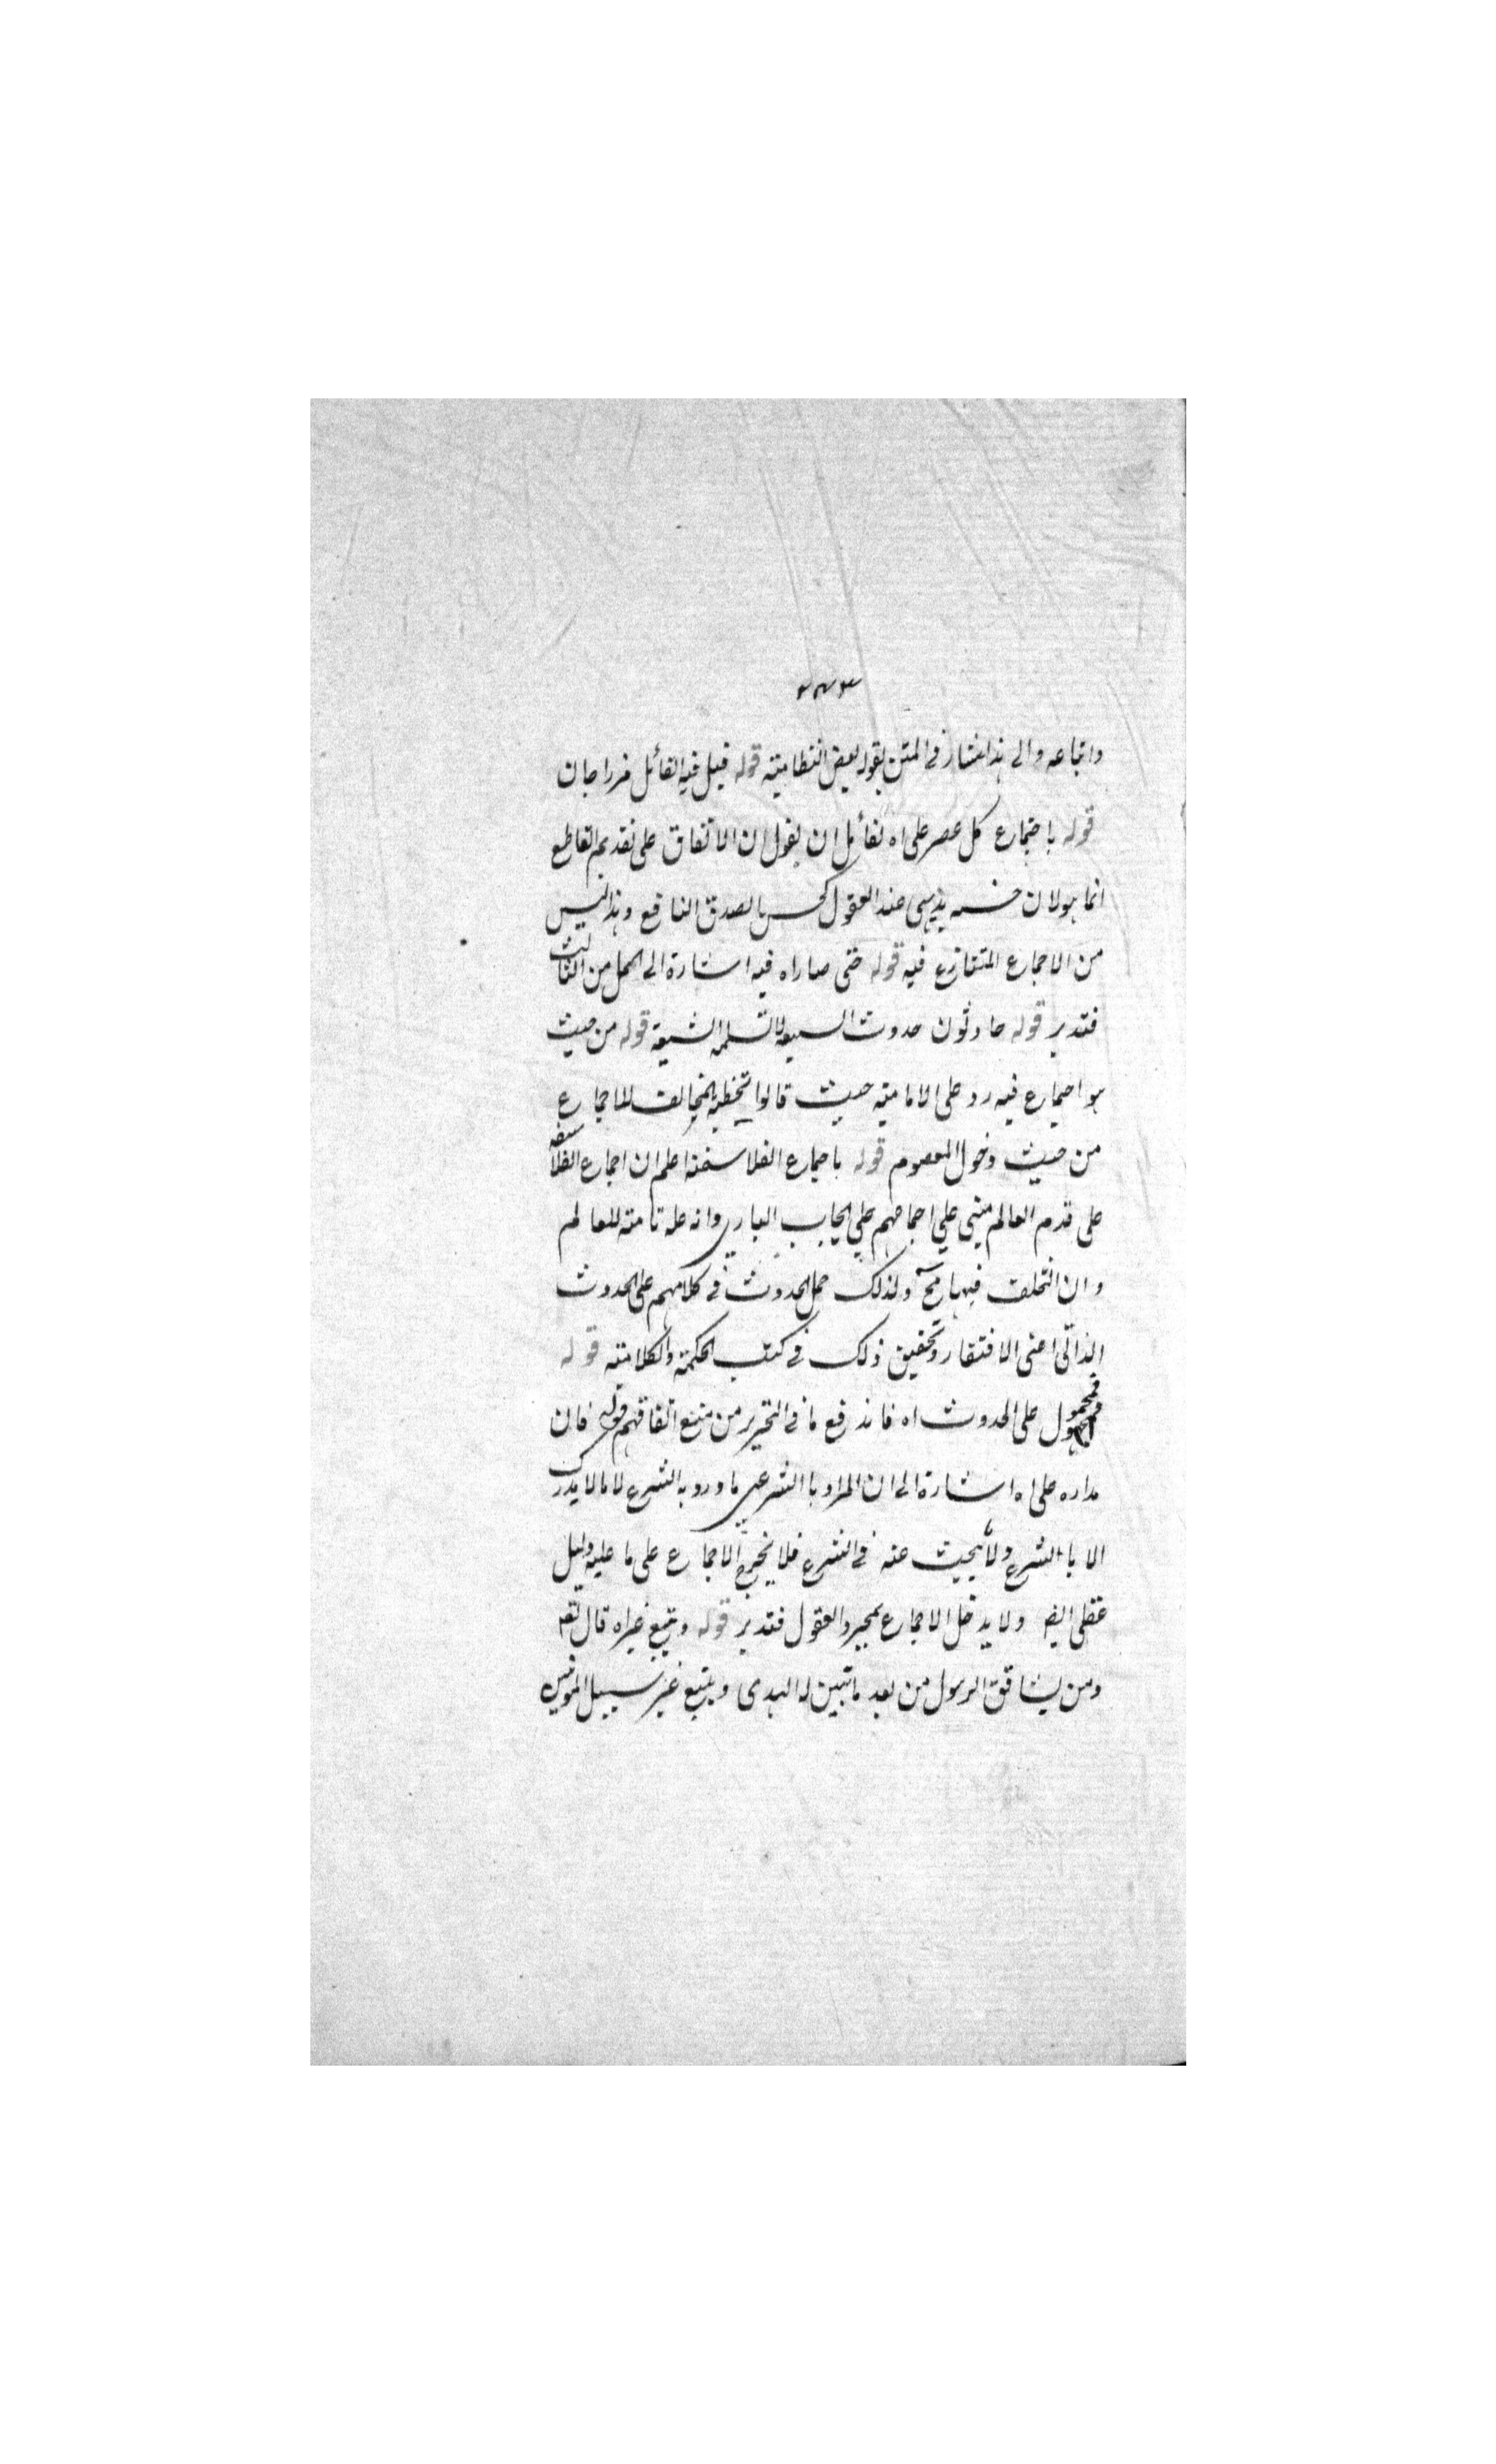 ٢٨٣
واتباعه والى هذا اشار فى المتن بقوله بعض النظامية قوله قيل فيه القائل مرزا جان
قوله باجماع كل عصر على اه لقائل ان يقول ان الاتفاق على تقديم القاطع
انما هو لان حسنه بديهى عند العقول كحسن الصدق النافع وهذا ليس
من الاجماع المتنازع فيه قوله حتى صار اه فيه اشارة الى الحل من الثالث
فتدبر قوله حادثون حدوث الشيعة قوله من حيث
هو اجماع فيه رد على الامامية حيث قالوا تخطية المخالف للاجماع
من حيث دخول المعصوم قوله باجماع الفلاسفة اعلم ان اجماع الفلاسفة
على قدم العالم مبنى على اجماعهم على ايجاب البارى وانه علة تامة للعالم
وان التخلف فيها مح ولذلك حمل الحدوث فى كلامهم على الحدوث
الذاتى اعنى الافتقار وتحقيق ذلك فى كتب الحكمة والكلامية قوله
فمحمول على الحدوث اه فاندفع ما فى التحرير من منع اتفاقهم قوله فان
مداره على اه اشارة الى ان المراد بالشرعى ما ورد به الشرع لا ما لا يدرك
الا بالشرع ولا يبحث عنه فى الشرع فلا يخرج الاجماع على ما عليه دليل
عقلى ايضا ولا يدخل الاجماع بمجرد العقول فتدبر قوله ويتبع غير اه قال تعم
ومن يشاقق الرسول من بعد ما تبين له الهدى ويتبع غير سبيل المؤمنين